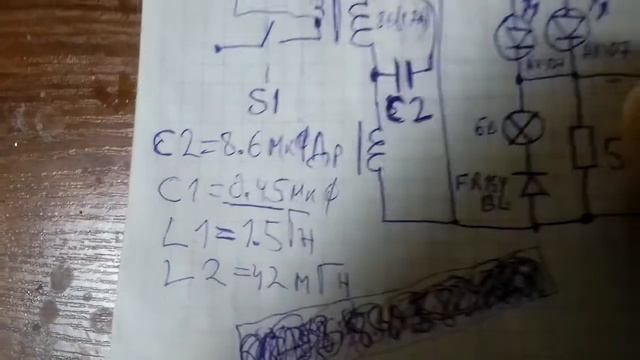 S1
C2
C2=8.6мкФ Др
C1=0.45мкф
L1=1.5Гн
L2=42мГн
6в
FR154
BL
5